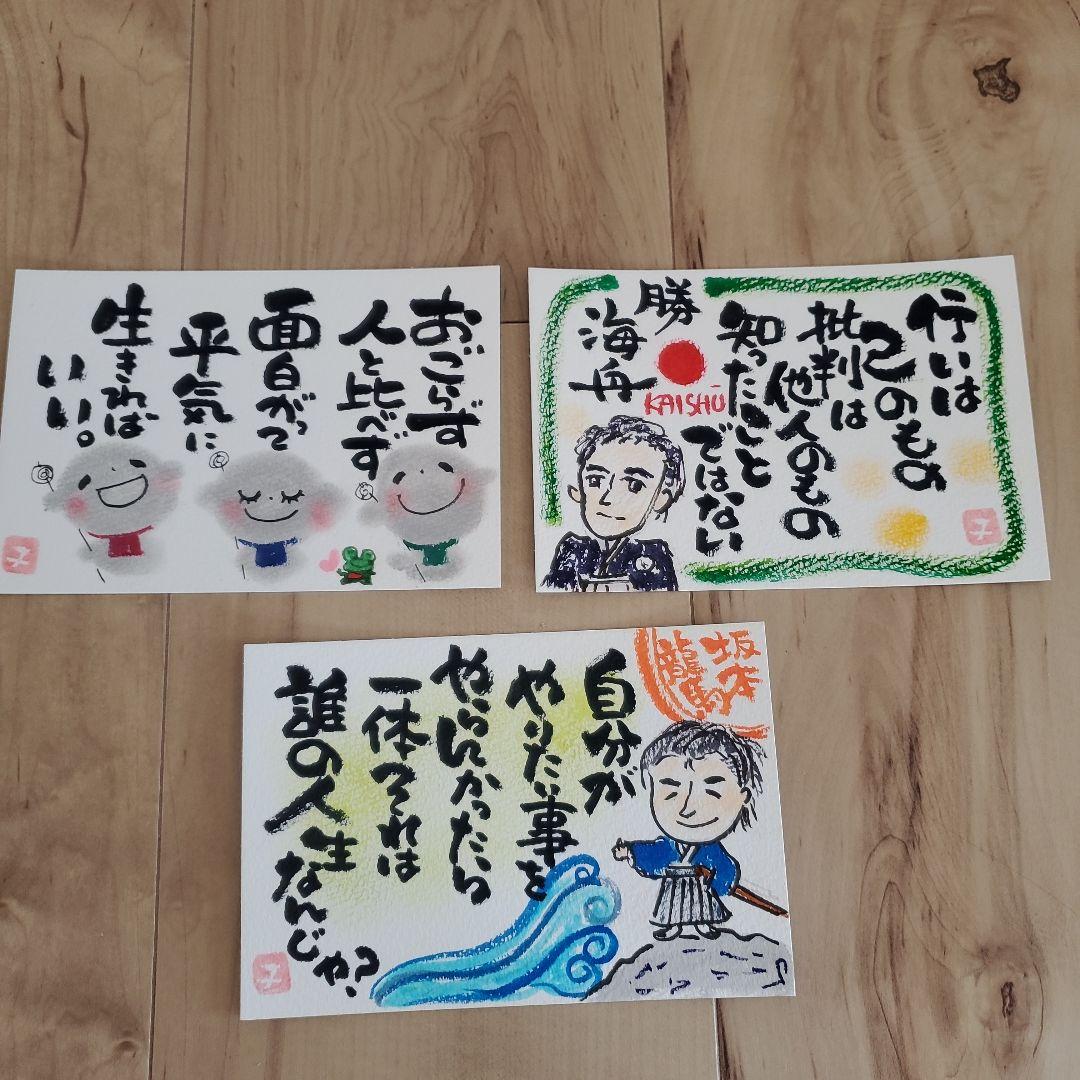 おごらず
人と比べず
面白がって
平気に
生きれば
いい。
行いは
己のもの
批判は
他人のもの
知ったこと
ではない
勝
海舟
KAISHŪ
坂本
龍馬
自分が
やりたい事を
やらんかったら
一体それは
誰の人生
なんじゃ?